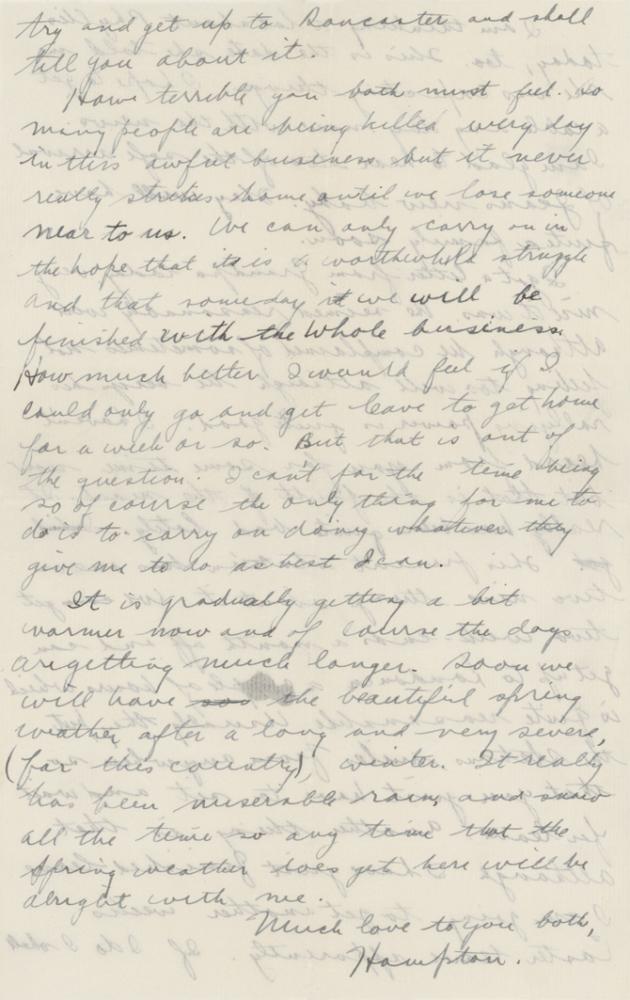 try and get up to Doncaster and shall
tell you about it.
Howe terrible you both must feel. So
many people are being killed every day
in this awful business but it never
really strikes home until we lose someone
near to us. We can only carry on in
the hope that its is a worthwhile struggle
and that someday it we will be
finished with the whole business.
How much better I would feel if I
could only go and get leave to get home
for a week or so. But that is out of
the question. I can't for the time being
so of course the only thing for me to
do is to carry on doing whatever they
give me to do as best I can.
It is gradually getting a bit
warmer now and of course the days
are getting much longer. Soon we
will have soo the beautiful spring
weather after a long and very severe,
(for this country), winter. It really
has been miserable rain, and snow
all the time so any time that the
spring weather does get here will be
alright with me.
Much love to you both,
Hampton.